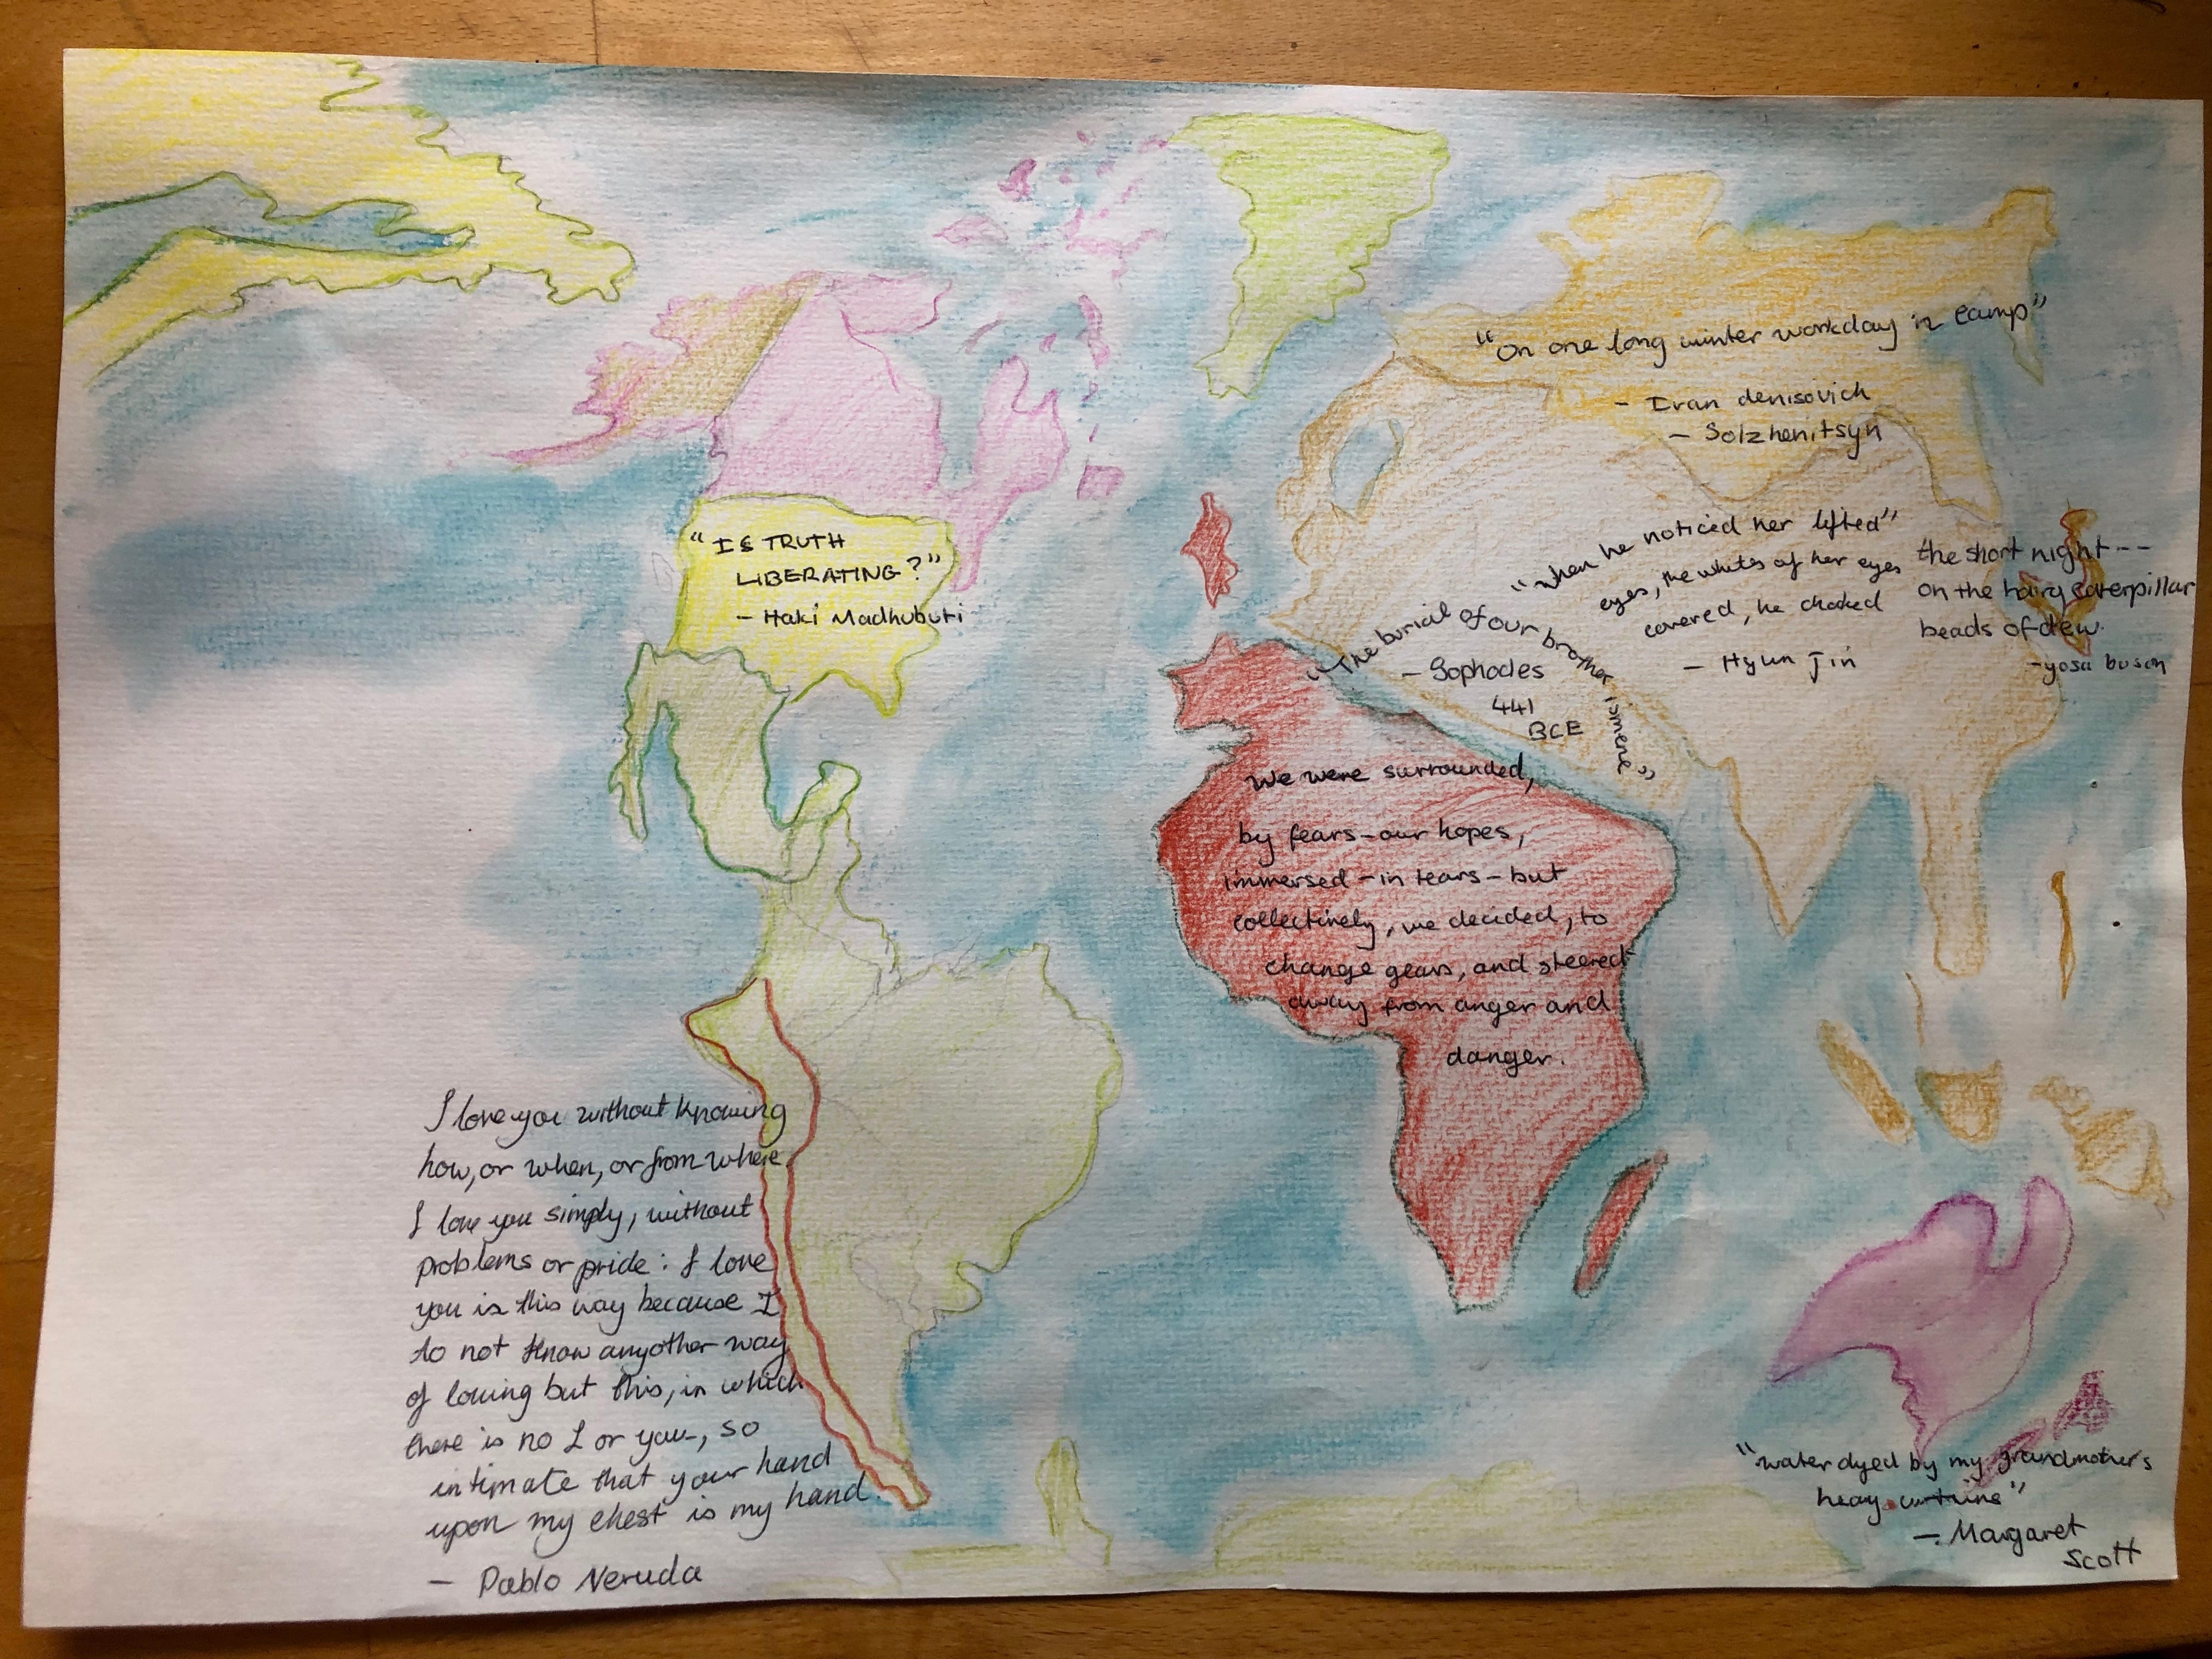 "IS TRUTH
LIBERATING?"
- Haki Madhubuti
"On one long winter workday in camp"
- Ivan denisovich
- Solzhenitsyn
"when he noticed her lifted"
eyes, the whites of her eyes
covered, he choked
- Hyun Jin
the short night--
on the hairy caterpillar
beads of dew.
-yosa buson
"The burial of our brother ismene"
- Sophocles
441
BCE
We were surrounded,
by fears-our hopes,
immersed-in tears-but
collectively, we decided, to
change gears, and steered
away from anger and
danger.
I love you without knowing
how, or when, or from where.
I love you simply, without
problems or pride: I love
you is this way because I
do not know anyother way
of loving but this, in which
there is no I or you, so
intimate that your hand
upon my chest is my hand.
- Pablo Neruda
"water dyed by my grandmothers
heavy
- Margaret
Scott